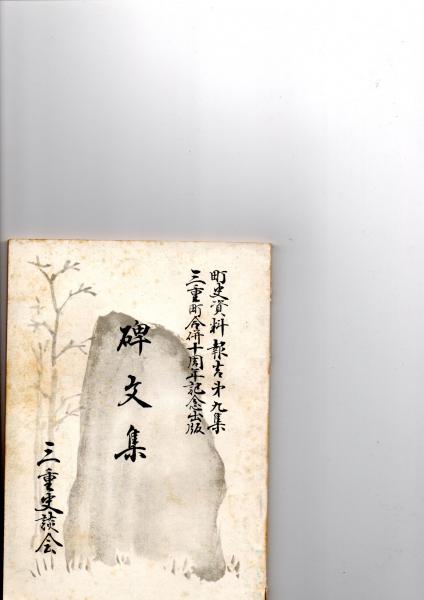 町史資料報告第九集
三重町合併十周年記念出版
碑文集
三重史談会